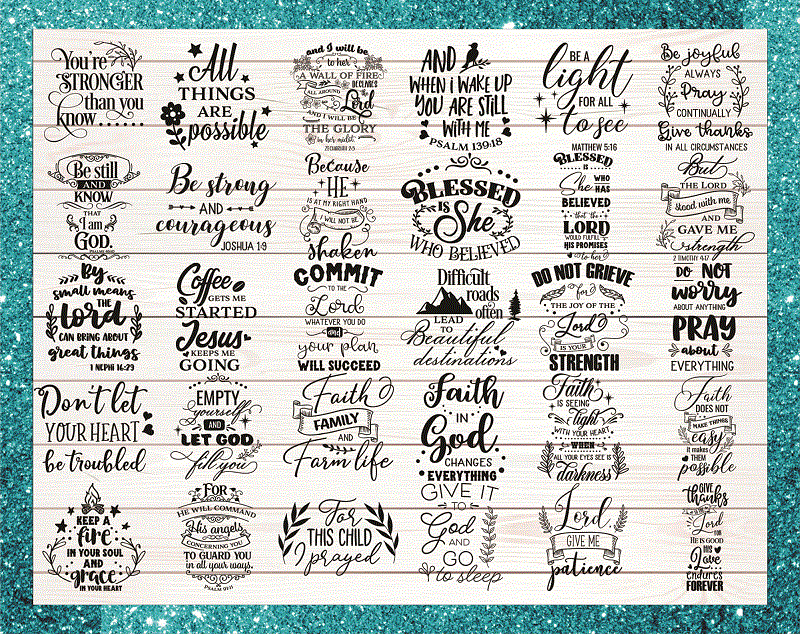 You're
STRONGER
than you
know......
All
THINGS
ARE
possible
and I will be
to her
A WALL OF FIRE
ALL AROUND
DECLARES
THE
Lord
AND I WILL BE
THE GLORY
in her midst.
ZECHARIAH 2:5
AND
WHEN i WAKE UP
YOU ARE STILL
WITH ME
PSALM 139:18
BE A
light
FOR ALL
to see
MATTHEW 5:16
Be joyful
ALWAYS
Pray
CONTINUALLY
Give thanks
IN ALL CIRCUMSTANCES
Be still
AND
KNOW
THAT
I am
GOD.
Be strong
AND
courageous
JOSHUA 1:9
Because
HE
IS AT MY RIGHT HAND
I WILL NOT BE
shaken
BLESSED
IS
She
WHO BELIEVED
BLESSED
IS
She WHO
HAS
BELIEVED
that the
LORD
WOULD FULFILL
HIS PROMISES
to her
But
THE LORD
stood with me
AND
GAVE ME
strength
2 TIMOTHY 4:17
By
small means
THE
Lord
CAN BRING ABOUT
great things
1 NEPHI 16:29
Coffee
GETS ME
STARTED
Jesus
KEEPS ME
GOING
COMMIT
TO THE
Lord
WHATEVER YOU DO
and
your plan
WILL SUCCEED
Difficult
roads
often
LEAD
TO
Beautiful
destinations
DO NOT GRIEVE
for
THE JOY OF THE
Lord
IS YOUR
STRENGTH
DO NOT
worry
ABOUT ANYTHING
PRAY
about
EVERYTHING
Don't let
YOUR HEART
be troubled
EMPTY
yourself
AND
LET GOD
fill you
Faith
FAMILY
AND
Farm life
Faith
IN
God
CHANGES
EVERYTHING
Faith
IS SEEING
light
WITH YOUR HEART
WHEN
ALL YOUR EYES SEE IS
darkness
Faith
DOES NOT
MAKE THINGS
easy
it makes
THEM
possible
KEEP A
fire
IN YOUR SOUL
AND
grace
IN YOUR HEART
FOR
HE WILL COMMAND
His angels
CONCERNING YOU
TO GUARD YOU
in all your ways.
PSALM 91:11
For
THIS CHILD
I prayed
GIVE IT
TO
God
AND
GO
to sleep
Lord,
GIVE ME
patience
GIVE
thanks
TO THE
Lord
FOR
HE IS GOOD
HIS
Love
endures
FOREVER